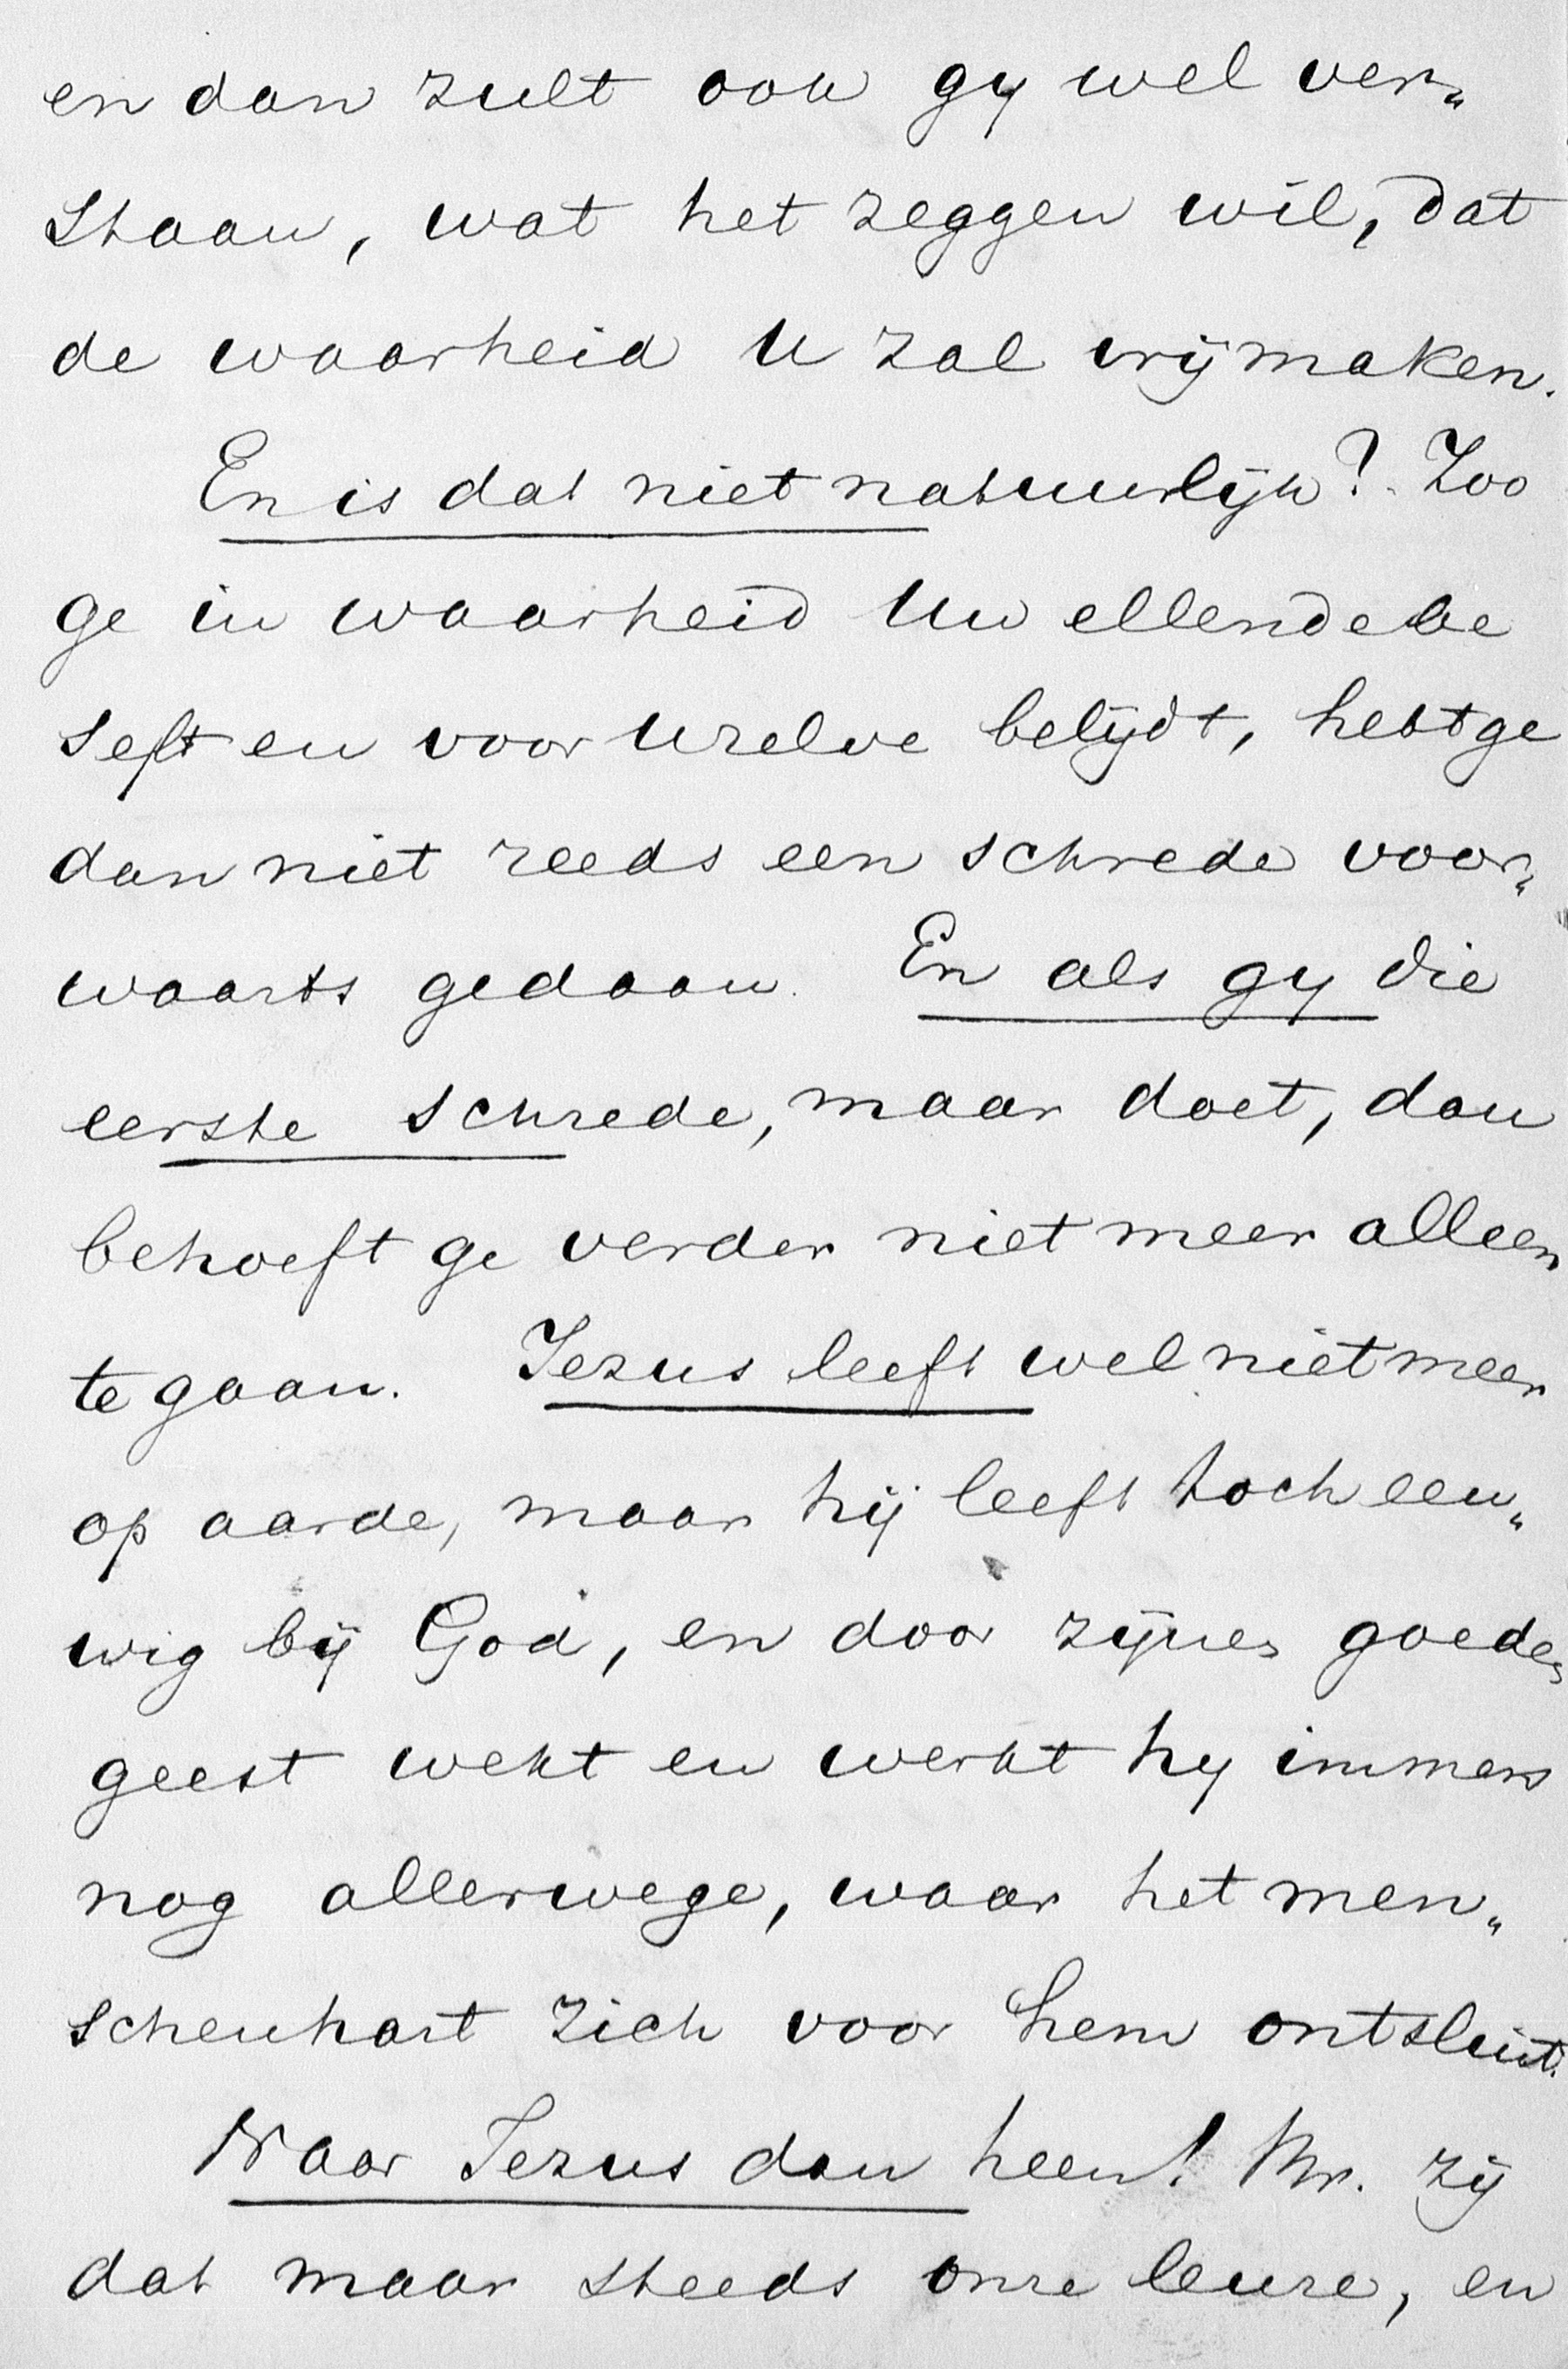 en dan zult ook gy wel ver„
staan, wat het zeggen wil, dat
de waarheid U zal vrijmaken.
En is dat niet natuurlijk? Zoo
ge in waarheid Uw ellende be
seft en voor Uzelve belijdt, hebt ge
dan niet reeds een schrede voor„
waarts gedaan. En als gy die
eerste schrede, maar doet, dan
behoeft ge verder niet meer alleen
te gaan. Jezus leeft wel niet meer
op aarde, maar hij leeft toch eeu„
wig bij God, en door zijnen goeden
geest wekt en werkt hy immers
nog allerwege, waar het men„
schenhart zich voor hem ontsluit.
Naar Jezus dan heen! Br. zij
dat maar steeds onze leuze, en